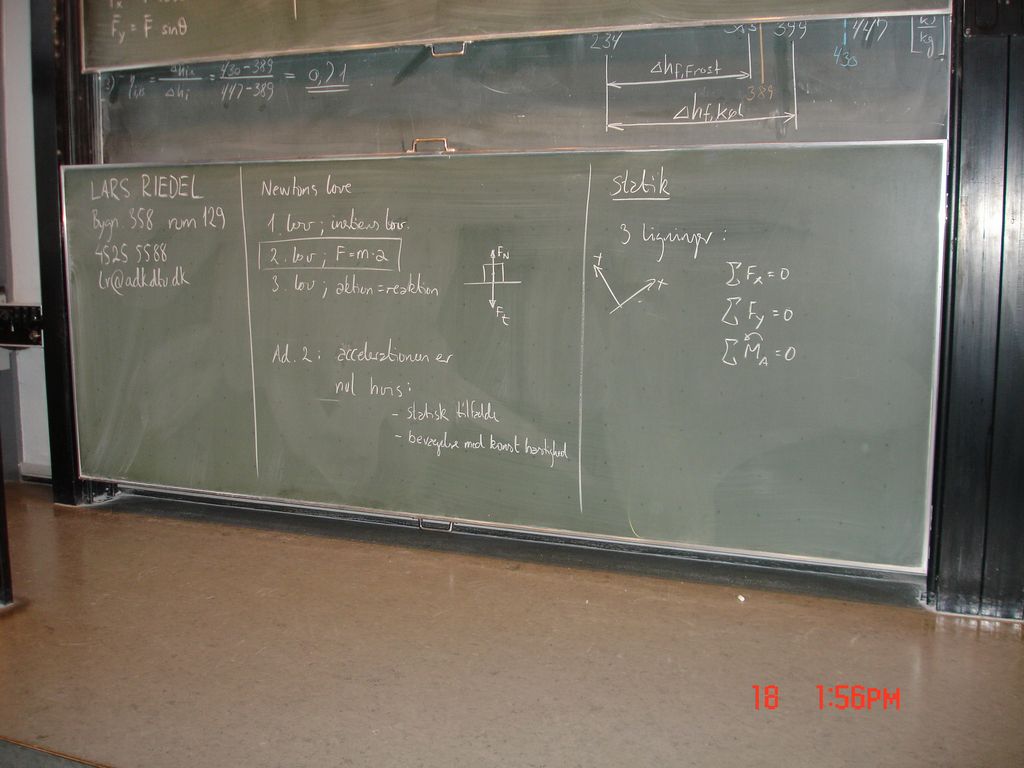 F_y = F sinθ
= Δhin / Δhi = 430-389 / 447-389 = 0,71
234
399
447
[kJ/kg]
430
Δhf,Frost
389
Δhf,køl
LARS RIEDEL
Bygn. 358 rum 129
4525 5588
lr@adk.dtu.dk
Newtons love
1. lov ; inertiens lov.
2. lov ; F = m·a
3. lov ; aktion = reaktion
F_N
F_t
Ad. 2 : accelerationen er
nul hvis :
- statisk tilfælde
- bevægelse med konst hastighed
Statik
3 ligninger :
+
+
∑ F_x = 0
∑ F_y = 0
∑ M_A = 0
18 1:56PM